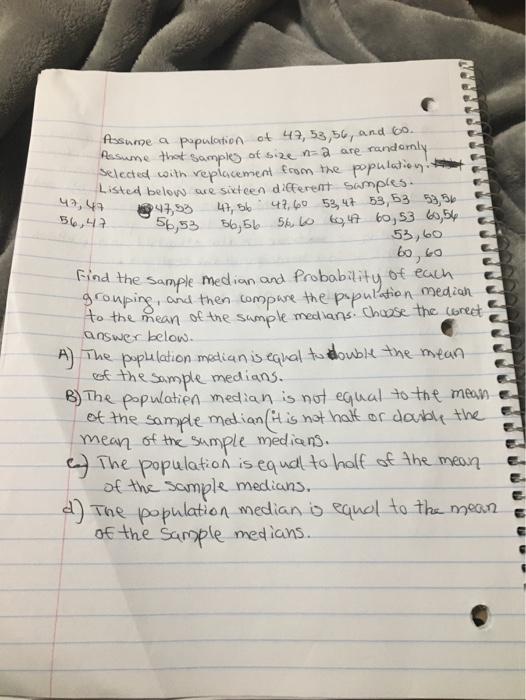 Assume a population of 47, 53, 56, and 60.
Assume that samples of size n=2 are randomly
selected with replacement from the population.
Listed below are sixteen different samples.
47,47 47,53 47,56 47,60 53,47 53,53 53,56
56,47 56,53 56,56 56,60 60,47 60,53 60,56
53,60
60,60
Find the sample median and Probability of each
grouping, and then compare the population median
to the mean of the sample medians. Choose the corect
answer below.
A) The population median is eqhal to double the mean
of the sample medians.
B) The population median is not equal to the mean
of the sample median (it is not half or double the
mean of the sample medians.
c) The population is equal to half of the mean
of the sample medians.
d) The population median is equal to the mean
of the sample medians.